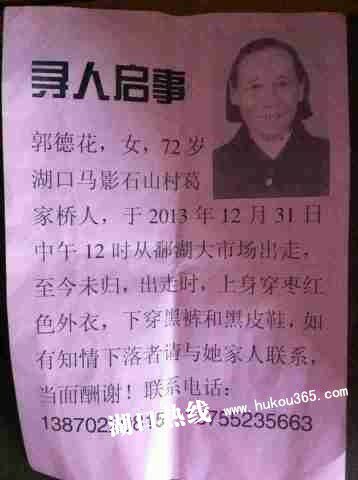 寻人启事
郭德花，女，72岁
湖口马影石山村葛
家桥人，于2013年12月31日
中午12时从鄱湖大市场出走，
至今未归，出走时，上身穿枣红
色外衣，下穿黑裤和黑皮鞋，如
有知情下落者请与她家人联系，
当面酬谢！联系电话：
湖口热线
www.hukou365.com